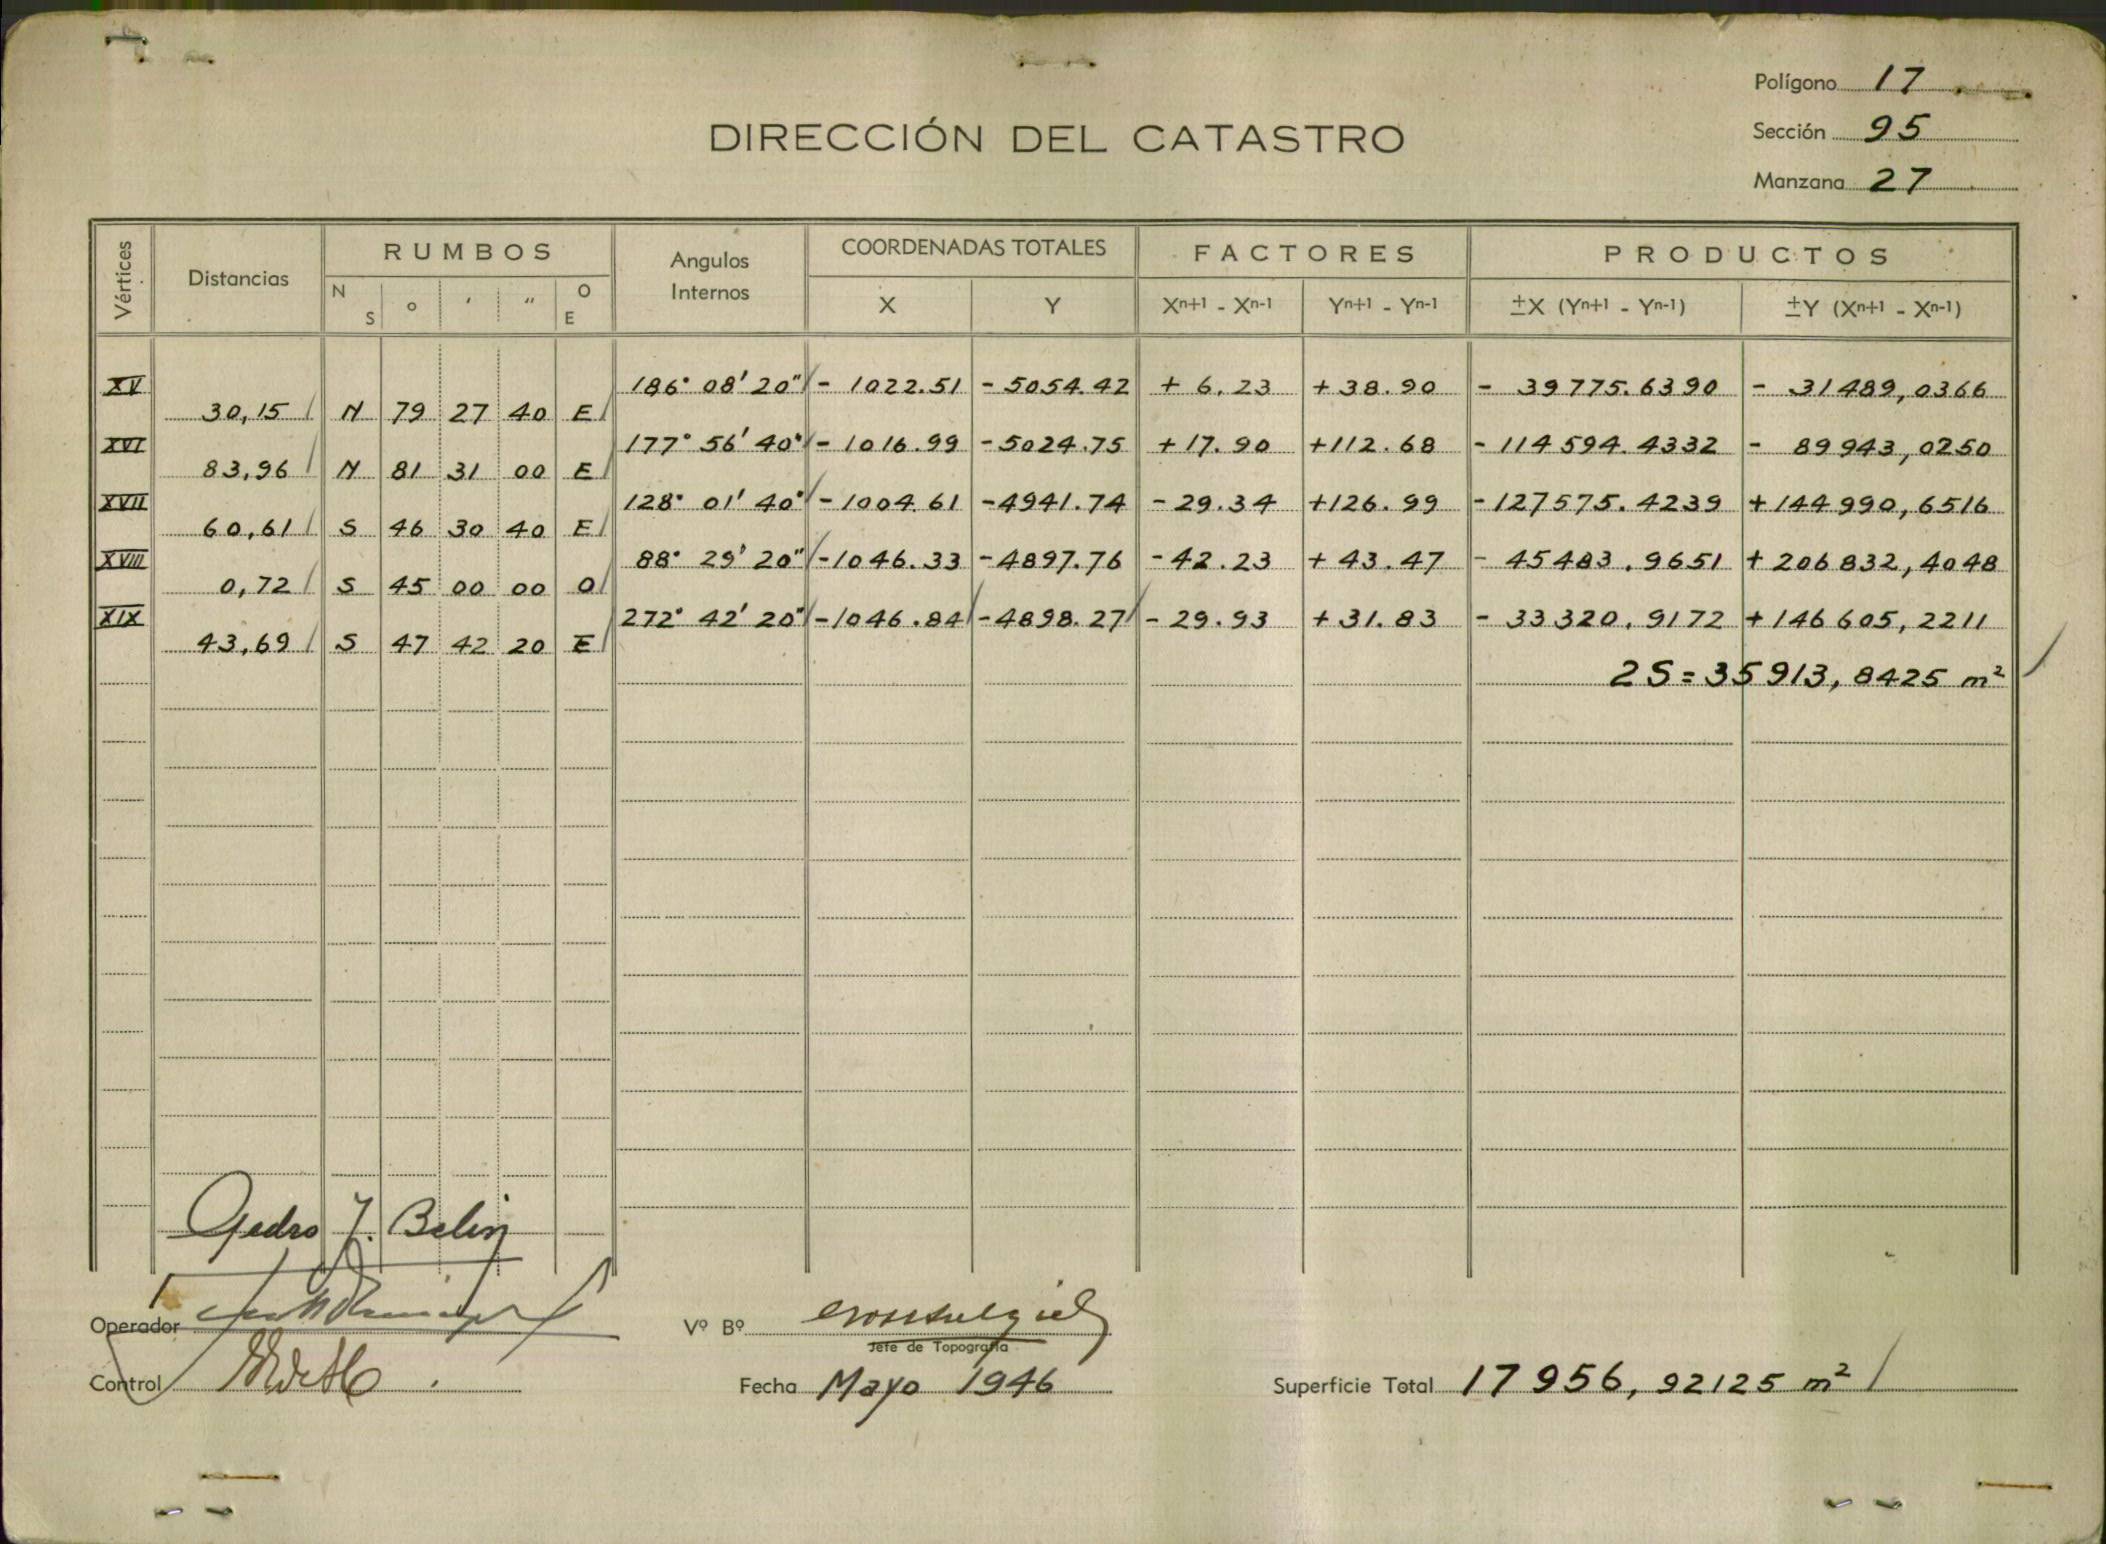 Polígono 17
DIRECCIÓN DEL CATASTRO
Sección 95
Manzana 27
Vértices Distancias RUMBOS Angulos Internos COORDENADAS TOTALES FACTORES PRODUCTOS
N S o ′ ″ O E X Y Xn+1 - Xn-1 Yn+1 - Yn-1 ±X (Yn+1 - Yn-1) ±Y (Xn+1 - Xn-1)
XV 186° 08' 20" - 1022.51 - 5054.42 + 6.23 + 38.90 - 39775.6390 - 31489,0366
30,15 N 79 27 40 E
XVI 177° 56' 40" - 1016.99 - 5024.75 + 17.90 + 112.68 - 114594.4332 - 89943,0250
83,96 N 81 31 00 E
XVII 128° 01' 40" - 1004.61 - 4941.74 - 29.34 + 126.99 - 127575.4239 + 144990,6516
60,61 S 46 30 40 E
XVIII 88° 29' 20" - 1046.33 - 4897.76 - 42.23 + 43.47 - 45483.9651 + 206832,4048
0,72 S 45 00 00 O
XIX 272° 42' 20" - 1046.84 - 4898.27 - 29.93 + 31.83 - 33320.9172 + 146605,2211
43,69 S 47 42 20 E
2S = 35913,8425 m²
Pedro J. Belin
Operador Vº Bº
Jefe de Topografía
Control Fecha Mayo 1946 Superficie Total 17956,92125 m²